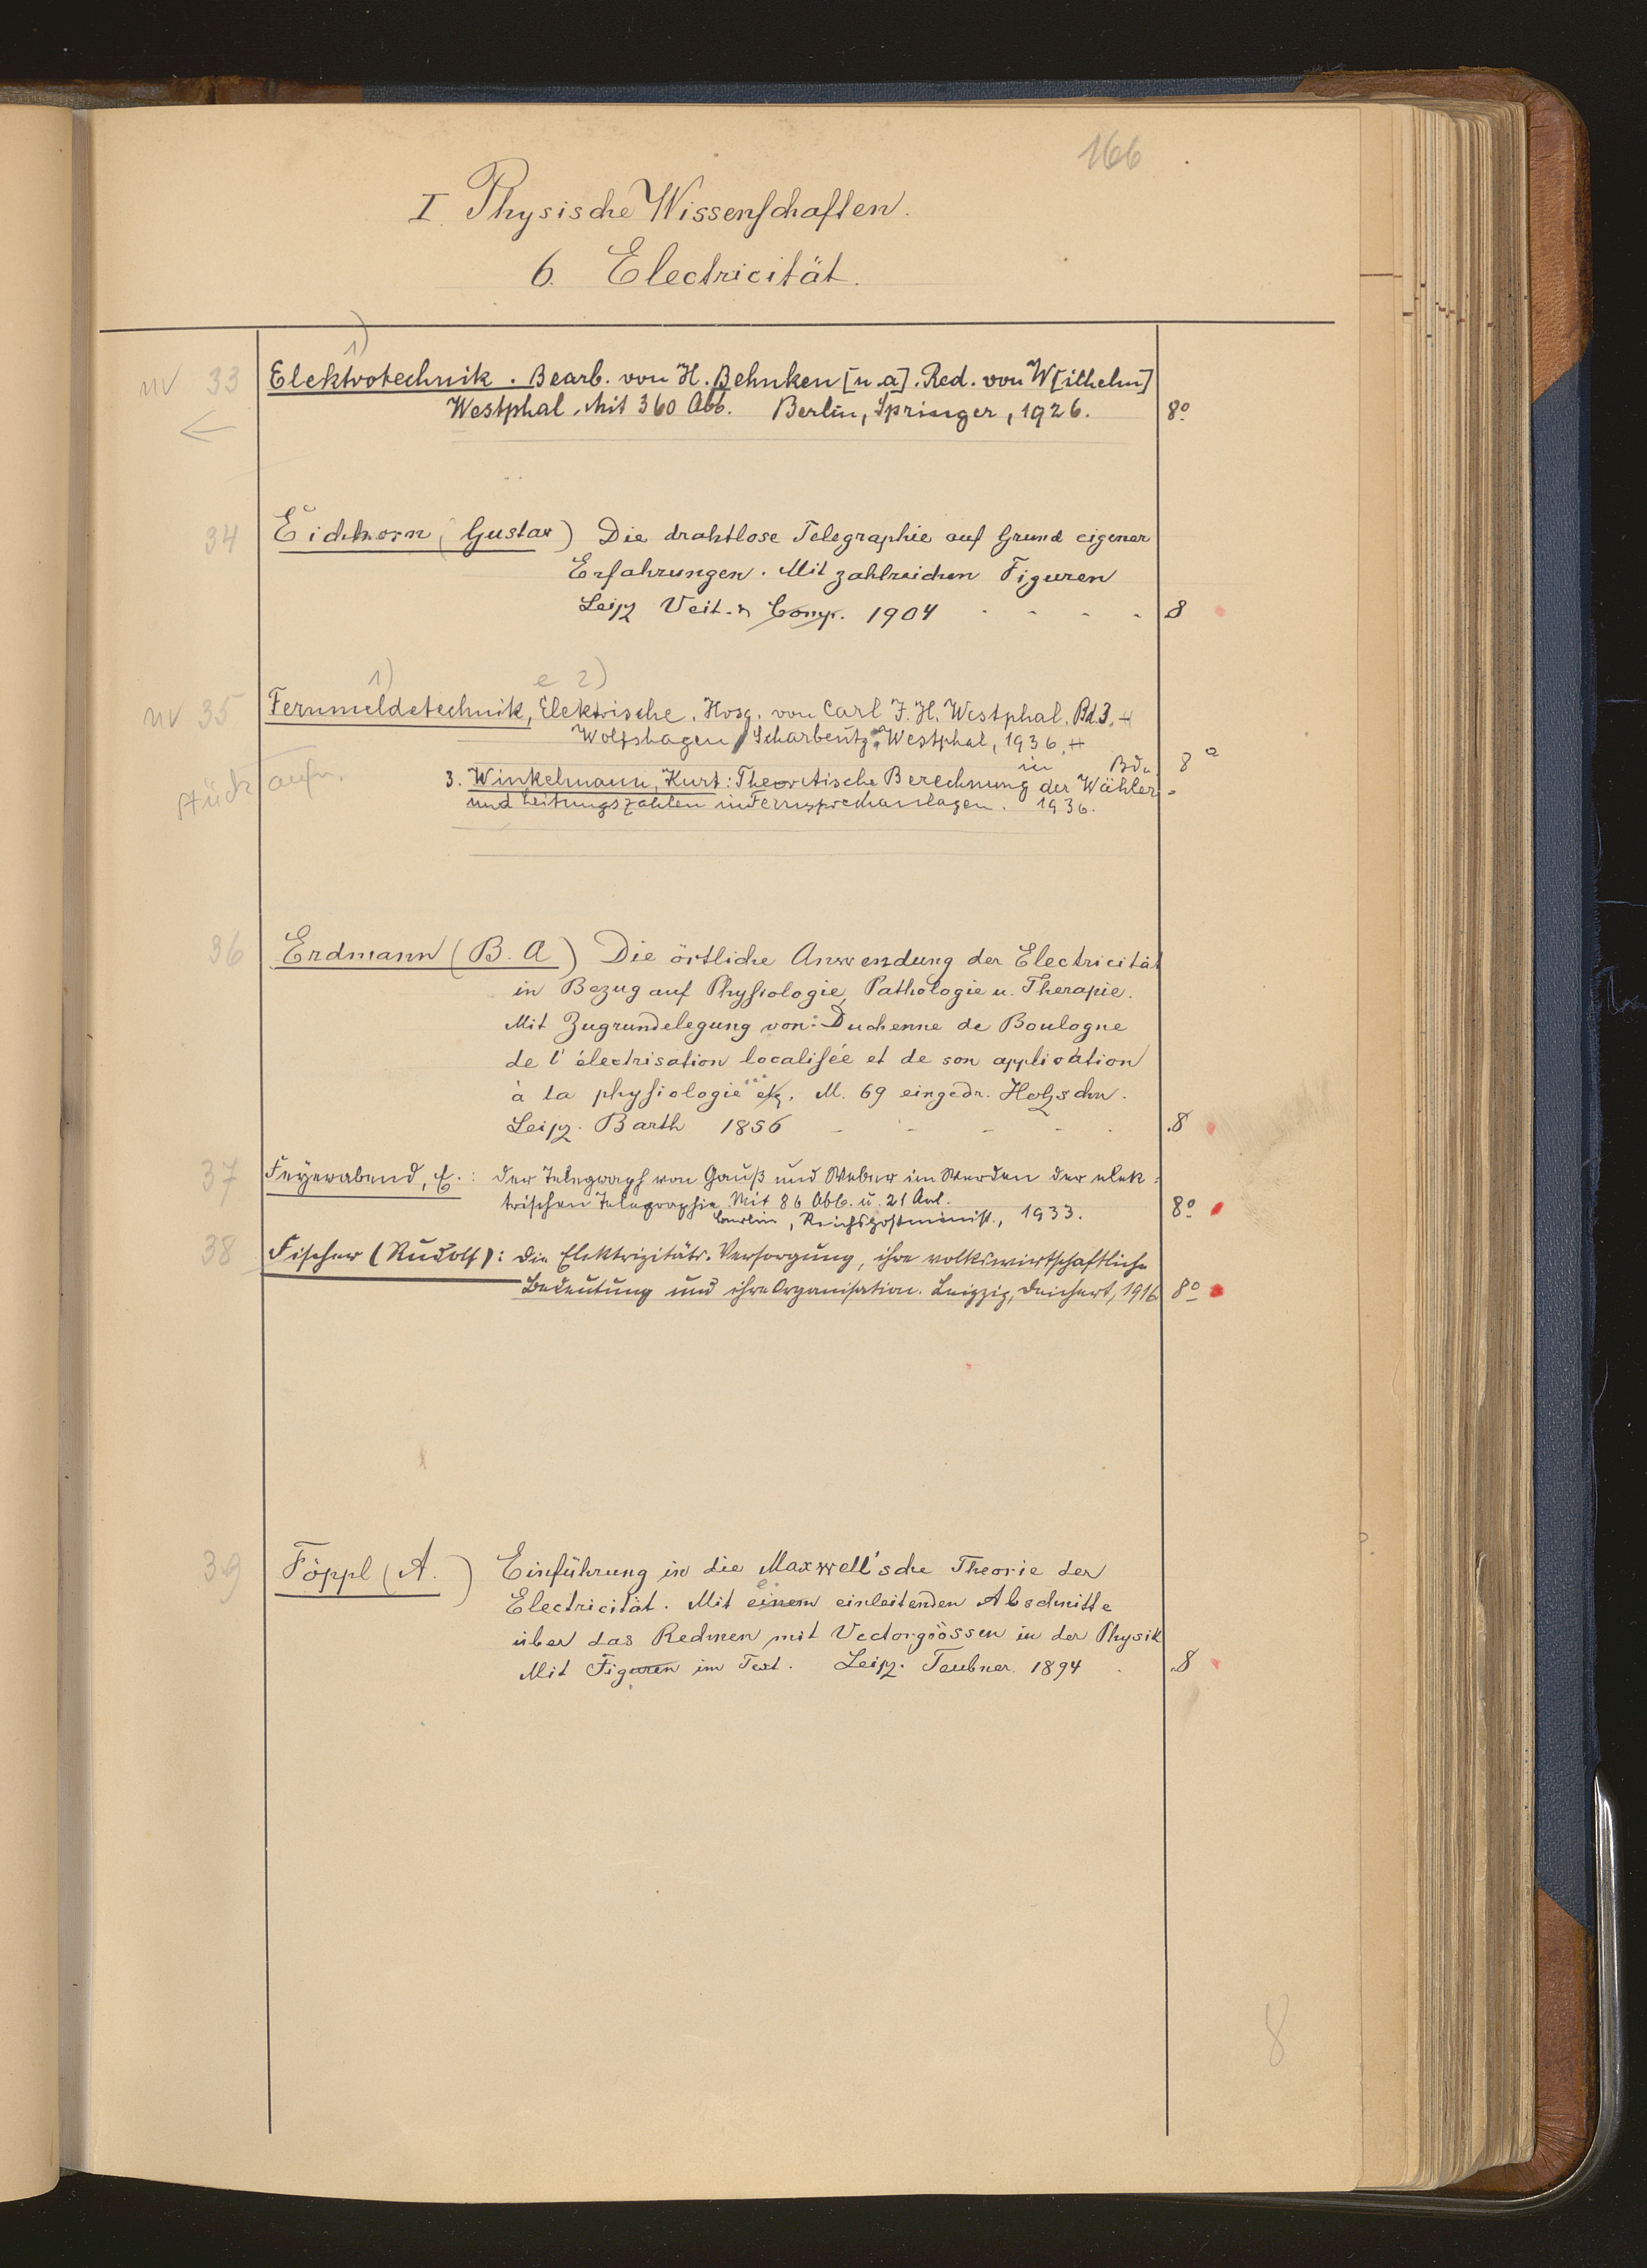 166
I. Physische Wissenschaften.
6. Electricität.
1)
nv 33 Elektrotechnik. Bearb. von H. Behnken [u. a]. Red. von W[ilhelm]
Westphal. Mit 360 Abb. Berlin, Springer, 1926. 8º
34 Eichhorn (Gustav) Die drahtlose Telegraphie auf Grund eigener
Erfahrungen. Mit zahlreichen Figuren
Leipz Veit & Comp. 1904 - - - - 8
1) e 2)
nv 35 Fernmeldetechnik, Elektrische. Hrsg. von Carl J. H. Westphal. Bd. 3.
Wolfshagen Scharbeutz: Westphal, 1936.
in Bdn. 8º
3. Winkelmann, Kurt: Theoretische Berechnung der Wähler-
Stück aufn.
und Leitungszahlen in Fernsprechanlagen. 1936.
36 Erdmann (B. A) Die örtliche Anwendung der Electricität
in Bezug auf Physiologie, Pathologie u. Therapie.
Mit Zugrundelegung von: Duchenne de Boulogne
de l'électrisation localisée et de son application
à la physiologie etc. M. 69 eingedr. Holzschn.
Leipz. Barth 1856 - - - - . 8
37 Feyerabend, E.: Der Telegraph von Gauß und Weber im Werden der elek-
trischen Telegraphie. Mit 86 Abb. u. 21 Anl.
Berlin, Reichspostminist., 1933. 8º
38 Fischer (Rudolf): Die Elektrizitäts-Versorgung, ihre volkswirtschaftliche
Bedeutung und ihre Organisation. Leipzig, Deichert, 1916 8º
39 Föppl (A. ) Einführung in die Maxwell'sche Theorie der
Electricität. Mit einem einleitenden Abschnitte
über das Rechnen mit Vectorgrössen in der Physik
Mit Figuren im Text. Leipz. Teubner. 1894 . 8
8